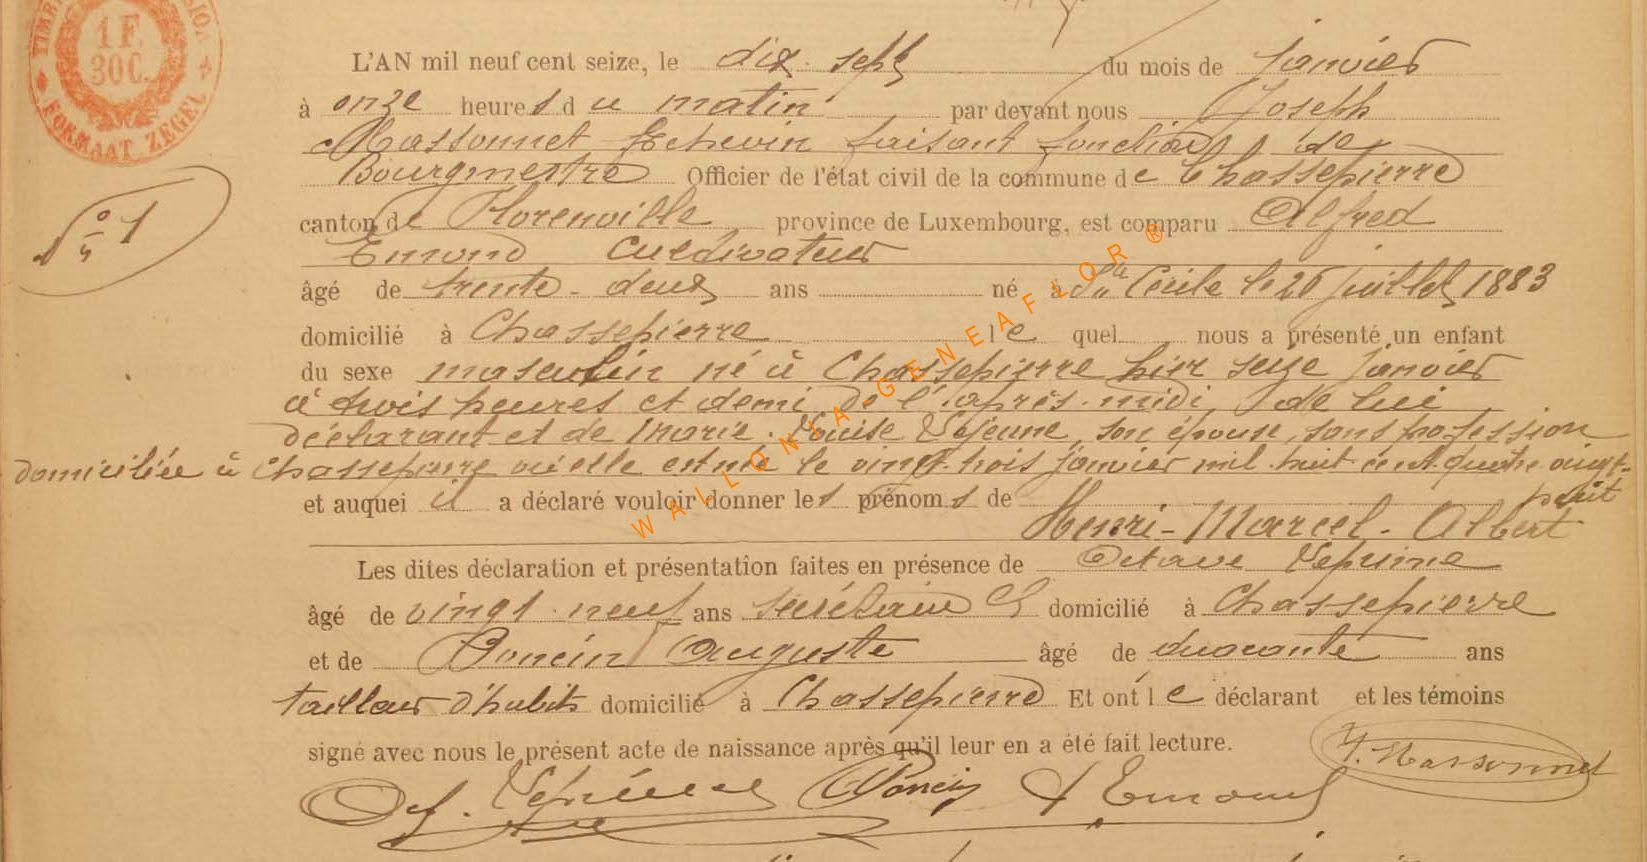 1 F. 30 C.
FORMAAT ZEGEL
L'AN mil neuf cent seize, le dix-sept du mois de janvier
à onze heures du matin par devant nous Joseph
Massonnet Echevin faisant fonction de
Bourgmestre Officier de l'état civil de la commune de Chassepierre
N° 1
canton de Florenville province de Luxembourg, est comparu Alfred
Emond Cultivateur
âgé de trente-deux ans né à Ste Cécile le 26 juillet 1883
domicilié à Chassepierre lequel nous a présenté un enfant
du sexe masculin né à Chassepierre hier seize janvier
à trois heures et demi de l'après-midi, de lui
déclarant et de Marie-Louise Lejeune, son épouse, sans profession
domiciliée à Chassepierre où elle est née le vingt-trois janvier mil-huit cent quatre-vingt-
huit
et auquel il a déclaré vouloir donner les prénoms de
Henri-Marcel-Albert
Les dites déclaration et présentation faites en présence de Octave
âgé de vingt-neuf ans secrétaire Cl domicilié à Chassepierre
et de Poncin Auguste âgé de quarante ans
tailleur d'habits domicilié à Chassepierre Et ont le déclarant et les témoins
signé avec nous le présent acte de naissance après qu'il leur en a été fait lecture.
J. Massonnet
Oct. Poncin A Emond
WALLONIA-GENEAFLOR ®